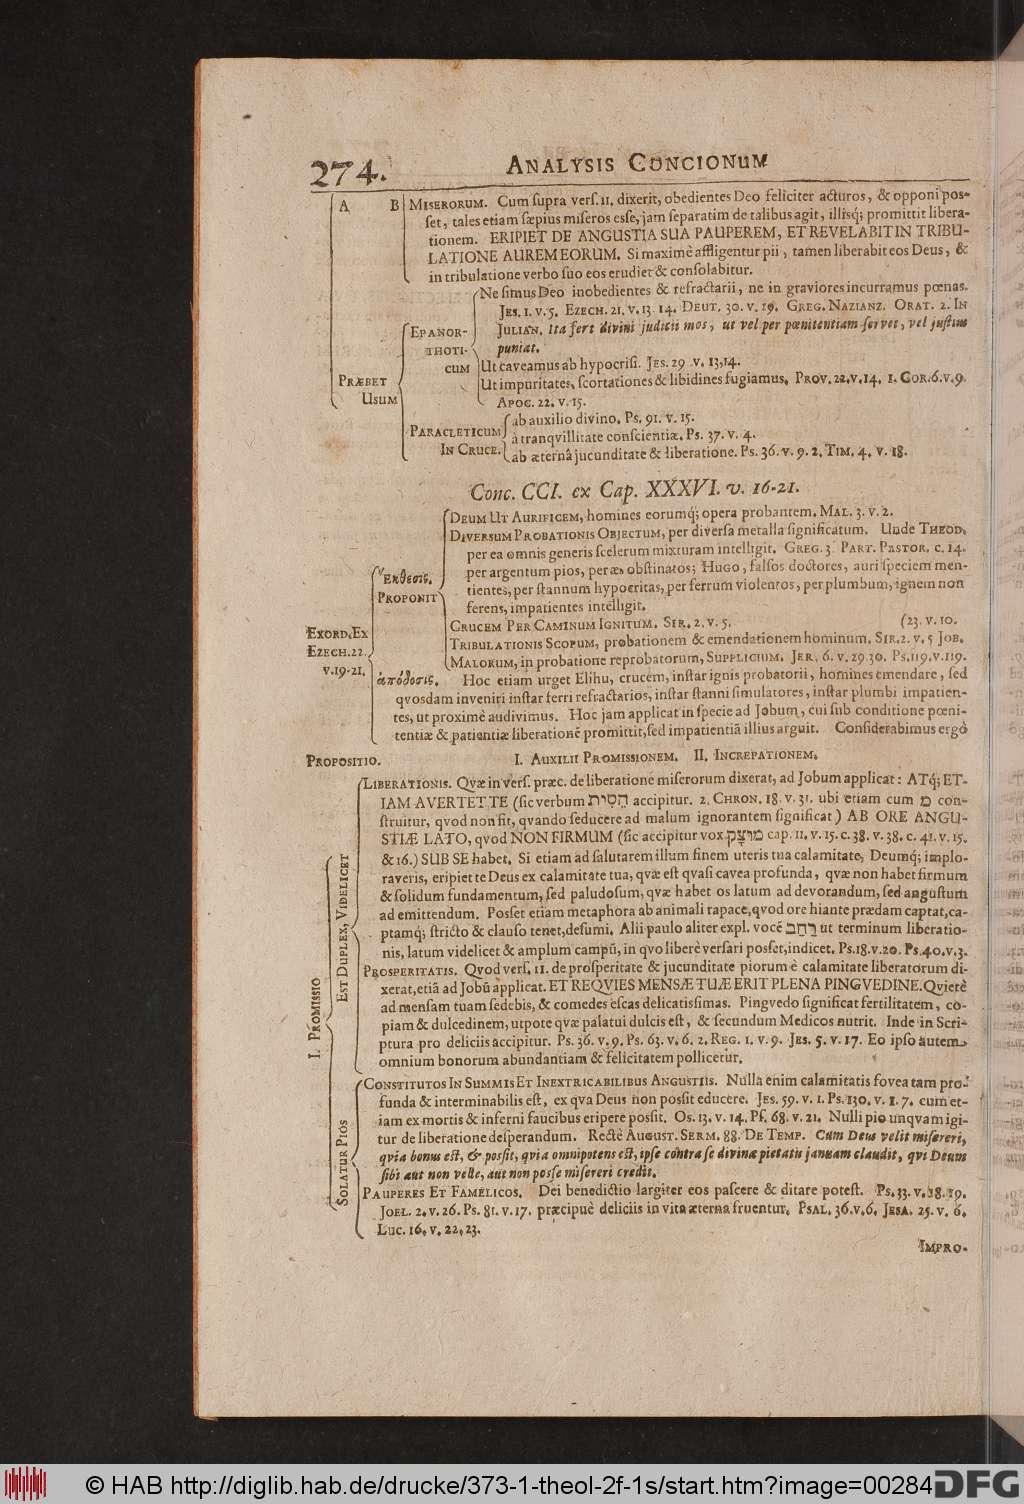 274. ANALYSIS CONCIONUM
A B MISERORUM. Cum ſupra verſ. 11, dixerit, obedientes Deo feliciter acturos, & opponi poſ-
ſet, tales etiam ſæpius miſeros eſſe, jam ſeparatim de talibus agit, illisq́; promittit libera-
tionem. ERIPIET DE ANGUSTIA SUA PAUPEREM, ET REVELABIT IN TRIBU-
LATIONE AUREM EORUM. Si maximè affligentur pii, tamen liberabit eos Deus, &
in tribulatione verbo ſuo eos erudiet & conſolabitur.
PRÆBET USUM
EPANOR-
THOTI-
CUM
Ne ſimus Deo inobedientes & refractarii, ne in graviores incurramus pœnas.
JES. 1. v. 5. EZECH. 21. v. 13. 14. DEUT. 30. v. 19. GREG. NAZIANZ. ORAT. 2. IN
JULIAN. Ita fert divini judicii mos, ut vel per pœnitentiam ſervet, vel juſtius
puniat.
Ut caveamus ab hypocriſi. JES. 29. v. 13, 14.
Ut impuritates, ſcortationes & libidines fugiamus. PROV. 22. v. 14. 1. COR. 6. v. 9.
APOC. 22. v. 15.
PARACLETICUM
IN CRUCE.
ab auxilio divino. Ps. 91. v. 15.
à tranqvillitate conſcientiæ. Ps. 37. v. 4.
ab æternâ jucunditate & liberatione. Ps. 36. v. 9. 2. TIM. 4. v. 18.
Conc. CCI. ex Cap. XXXVI. v. 16-21.
EXORD. EX
EZECH. 22.
v. 19-21.
Ἔκθεσις.
PROPONIT
DEUM UT AURIFICEM, homines eorumq́; opera probantem. MAL. 3. v. 2.
DIVERSUM PROBATIONIS OBJECTUM, per diverſa metalla ſignificatum. Unde THEOD.
per ea omnis generis ſcelerum mixturam intelligit. GREG. 3. PART. PASTOR. c. 14.
per argentum pios, per æs obſtinatos; Hugo, falſos doctores, auri ſpeciem men-
tientes, per ſtannum hypocritas, per ferrum violentos, per plumbum, ignem non
ferens, impatientes intelligit.
CRUCEM PER CAMINUM IGNITUM. SIR. 2. v. 5. (23. v. 10.
TRIBULATIONIS SCOPUM, probationem & emendationem hominum. SIR. 2. v. 5 JOB.
MALORUM, in probatione reprobatorum, SUPPLICIUM. JER. 6. v. 29. 30. Ps. 119. v. 119.
ἀπόδοσις. Hoc etiam urget Elihu, crucem, inſtar ignis probatorii, homines emendare, ſed
qvosdam inveniri inſtar ferri refractarios, inſtar ſtanni ſimulatores, inſtar plumbi impatien-
tes, ut proximè audivimus. Hoc jam applicat in ſpecie ad Jobum, cui ſub conditione pœni-
tentiæ & patientiæ liberationē promittit, ſed impatientiā illius arguit. Conſiderabimus ergò
PROPOSITIO. I. AUXILII PROMISSIONEM. II. INCREPATIONEM.
I. PROMISSIO
EST DUPLEX, VIDELICET
LIBERATIONIS. Qvæ in verſ. præc. de liberatione miſerorum dixerat, ad Jobum applicat: ATq́; ET-
IAM AVERTET TE (ſic verbum הֵסִית accipitur. 2. CHRON. 18. v. 31. ubi etiam cum מ con-
ſtruitur, qvod non ſit, qvando ſeducere ad malum ignorantem ſignificat) AB ORE ANGU-
STIÆ LATO, qvod NON FIRMUM (ſic accipitur vox מוּצָק cap. 11. v. 15. c. 38. v. 38. c. 41. v. 15.
& 16.) SUB SE habet. Si etiam ad ſalutarem illum finem uteris tua calamitate, Deumq́; implo-
raveris, eripiet te Deus ex calamitate tua, qvæ eſt qvaſi cavea profunda, qvæ non habet firmum
& ſolidum fundamentum, ſed paludoſum, qvæ habet os latum ad devorandum, ſed anguſtum
ad emittendum. Poſſet etiam metaphora ab animali rapace, qvod ore hiante prædam captat, ca-
ptamq́; ſtricto & clauſo tenet, deſumi. Alii paulo aliter expl. vocē רַחַב ut terminum liberatio-
nis, latum videlicet & amplum campū, in qvo liberè verſari poſſet, indicet. Ps. 18. v. 20. Ps. 40. v. 3.
PROSPERITATIS. Qvod verſ. 11. de proſperitate & jucunditate piorum è calamitate liberatorum di-
xerat, etiā ad Jobū applicat. ET REQVIES MENSÆ TUÆ ERIT PLENA PINGVEDINE. Qvietè
ad menſam tuam ſedebis, & comedes eſcas delicatiſſimas. Pingvedo ſignificat fertilitatem, co-
piam & dulcedinem, utpote qvæ palatui dulcis eſt, & ſecundum Medicos nutrit. Inde in Scri-
ptura pro deliciis accipitur. Ps. 36. v. 9. Ps. 63. v. 6. 2. REG. 1. v. 9. JES. 5. v. 17. Eo ipſo autem
omnium bonorum abundantiam & felicitatem pollicetur.
SOLATUR PIOS
CONSTITUTOS IN SUMMIS ET INEXTRICABILIBUS ANGUSTIIS. Nulla enim calamitatis fovea tam pro-
funda & interminabilis eſt, ex qva Deus non poſſit educere. JES. 59. v. 1. Ps. 130. v. 1. 7. cum et-
iam ex mortis & inferni faucibus eripere poſſit. Os. 13. v. 14. Pſ. 68. v. 21. Nulli pio unqvam igi-
tur de liberatione deſperandum. Rectè AUGUST. SERM. 88. DE TEMP. Cum Deus velit miſereri,
qvia bonus eſt, & poſſit, qvia omnipotens eſt, ipſe contra ſe divinæ pietatis januam claudit, qvi Deum
ſibi aut non velle, aut non poſſe miſereri credit.
PAUPERES ET FAMELICOS. Dei benedictio largiter eos paſcere & ditare poteſt. Ps. 33. v. 18. 19.
JOEL. 2. v. 26. Ps. 81. v. 17. præcipuè deliciis in vita æterna fruentur. PSAL. 36. v. 6. JESA. 25. v. 6.
LUC. 16. v. 22. 23.
IMPRO-
© HAB http://diglib.hab.de/drucke/373-1-theol-2f-1s/start.htm?image=00284
DFG